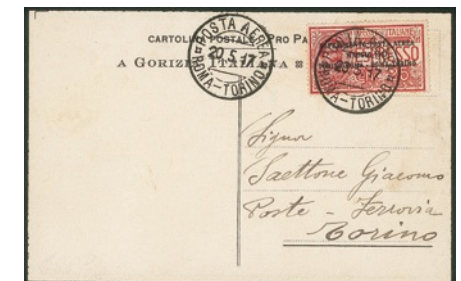 CARTOLINA POSTALE PRO PA
A GORIZIA ITALIANA
POSTA AEREA
20.5.17
ROMA-TORINO
ESPERIMENTO POSTA AEREA
20.5.17
ROMA-TORINO
Signor
Saettone Giacomo
Poste - Ferrovia
Torino